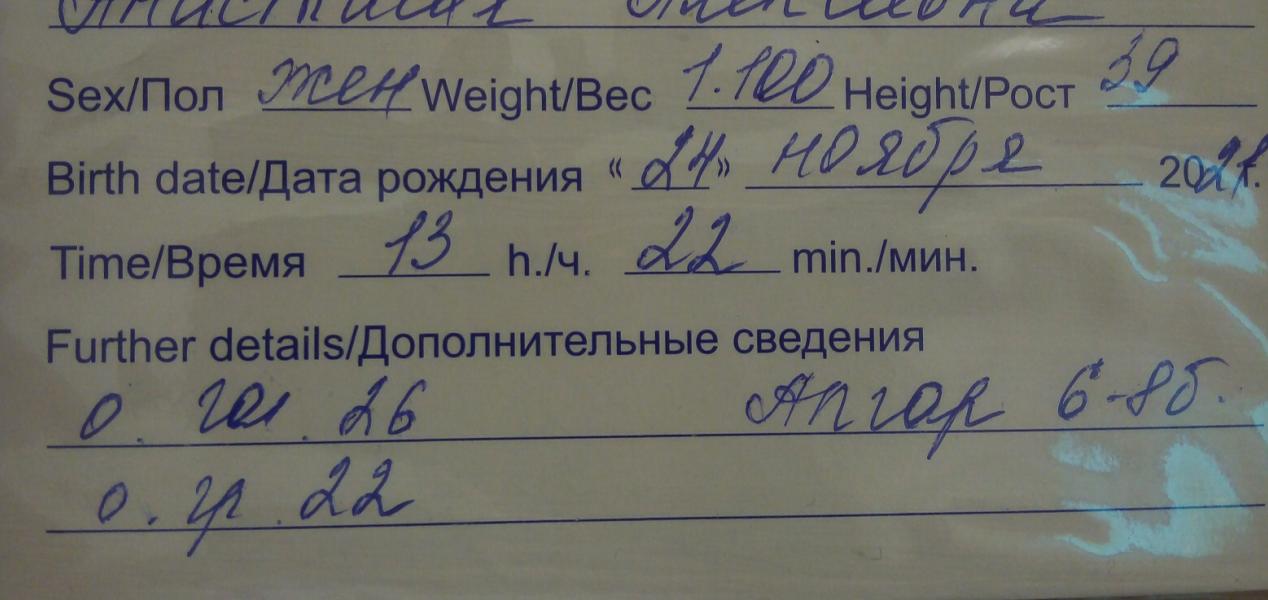 Sex/Пол жен Weight/Вес 1.100 Height/Рост 39
Birth date/Дата рождения “24” ноября 2021г.
Time/Время 13 h./ч. 22 min./мин.
Further details/Дополнительные сведения
о. гол. 26 Апгар 6-8б.
о. гр. 22